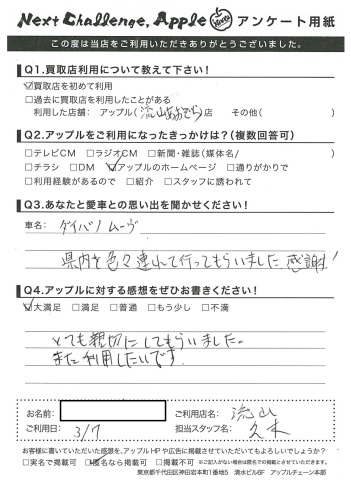 Next Challenge, Apple Hero アンケート用紙
この度は当店をご利用いただきありがとうございました。
Q1.買取店利用について教えて下さい！
☑買取店を初めて利用
□過去に買取店を利用したことがある
利用した店舗： アップル( 流山おおぞら )店 その他( )
Q2.アップルをご利用になったきっかけは？(複数回答可)
□テレビCM □ラジオCM □新聞・雑誌(媒体名/ )
□チラシ □DM ☑アップルのホームページ □通りがかりで
□利用経験があるので □紹介 □スタッフに誘われて
Q3.あなたと愛車との思い出を聞かせください！
車名： ダイハツ ムーヴ
県内を色々連れて行ってもらいました。感謝！
Q4.アップルに対する感想をぜひお書きください！
☑大満足 □満足 □普通 □もう少し □不満
とても親切にしてもらいました。
また利用したいです。
お名前： ご利用店名： 流山
ご利用日： 3/7 担当スタッフ名： 久木
お客様に書いていただいた感想を、アップルHPや広告に掲載させていただいてもよろしいでしょうか？
□実名で掲載可 ☑匿名なら掲載可 □掲載不可 ※ご記入がない場合は匿名での掲載とさせていただきます。
東京都千代田区神田岩本町1番地5 清水ビル6F アップルチェーン本部